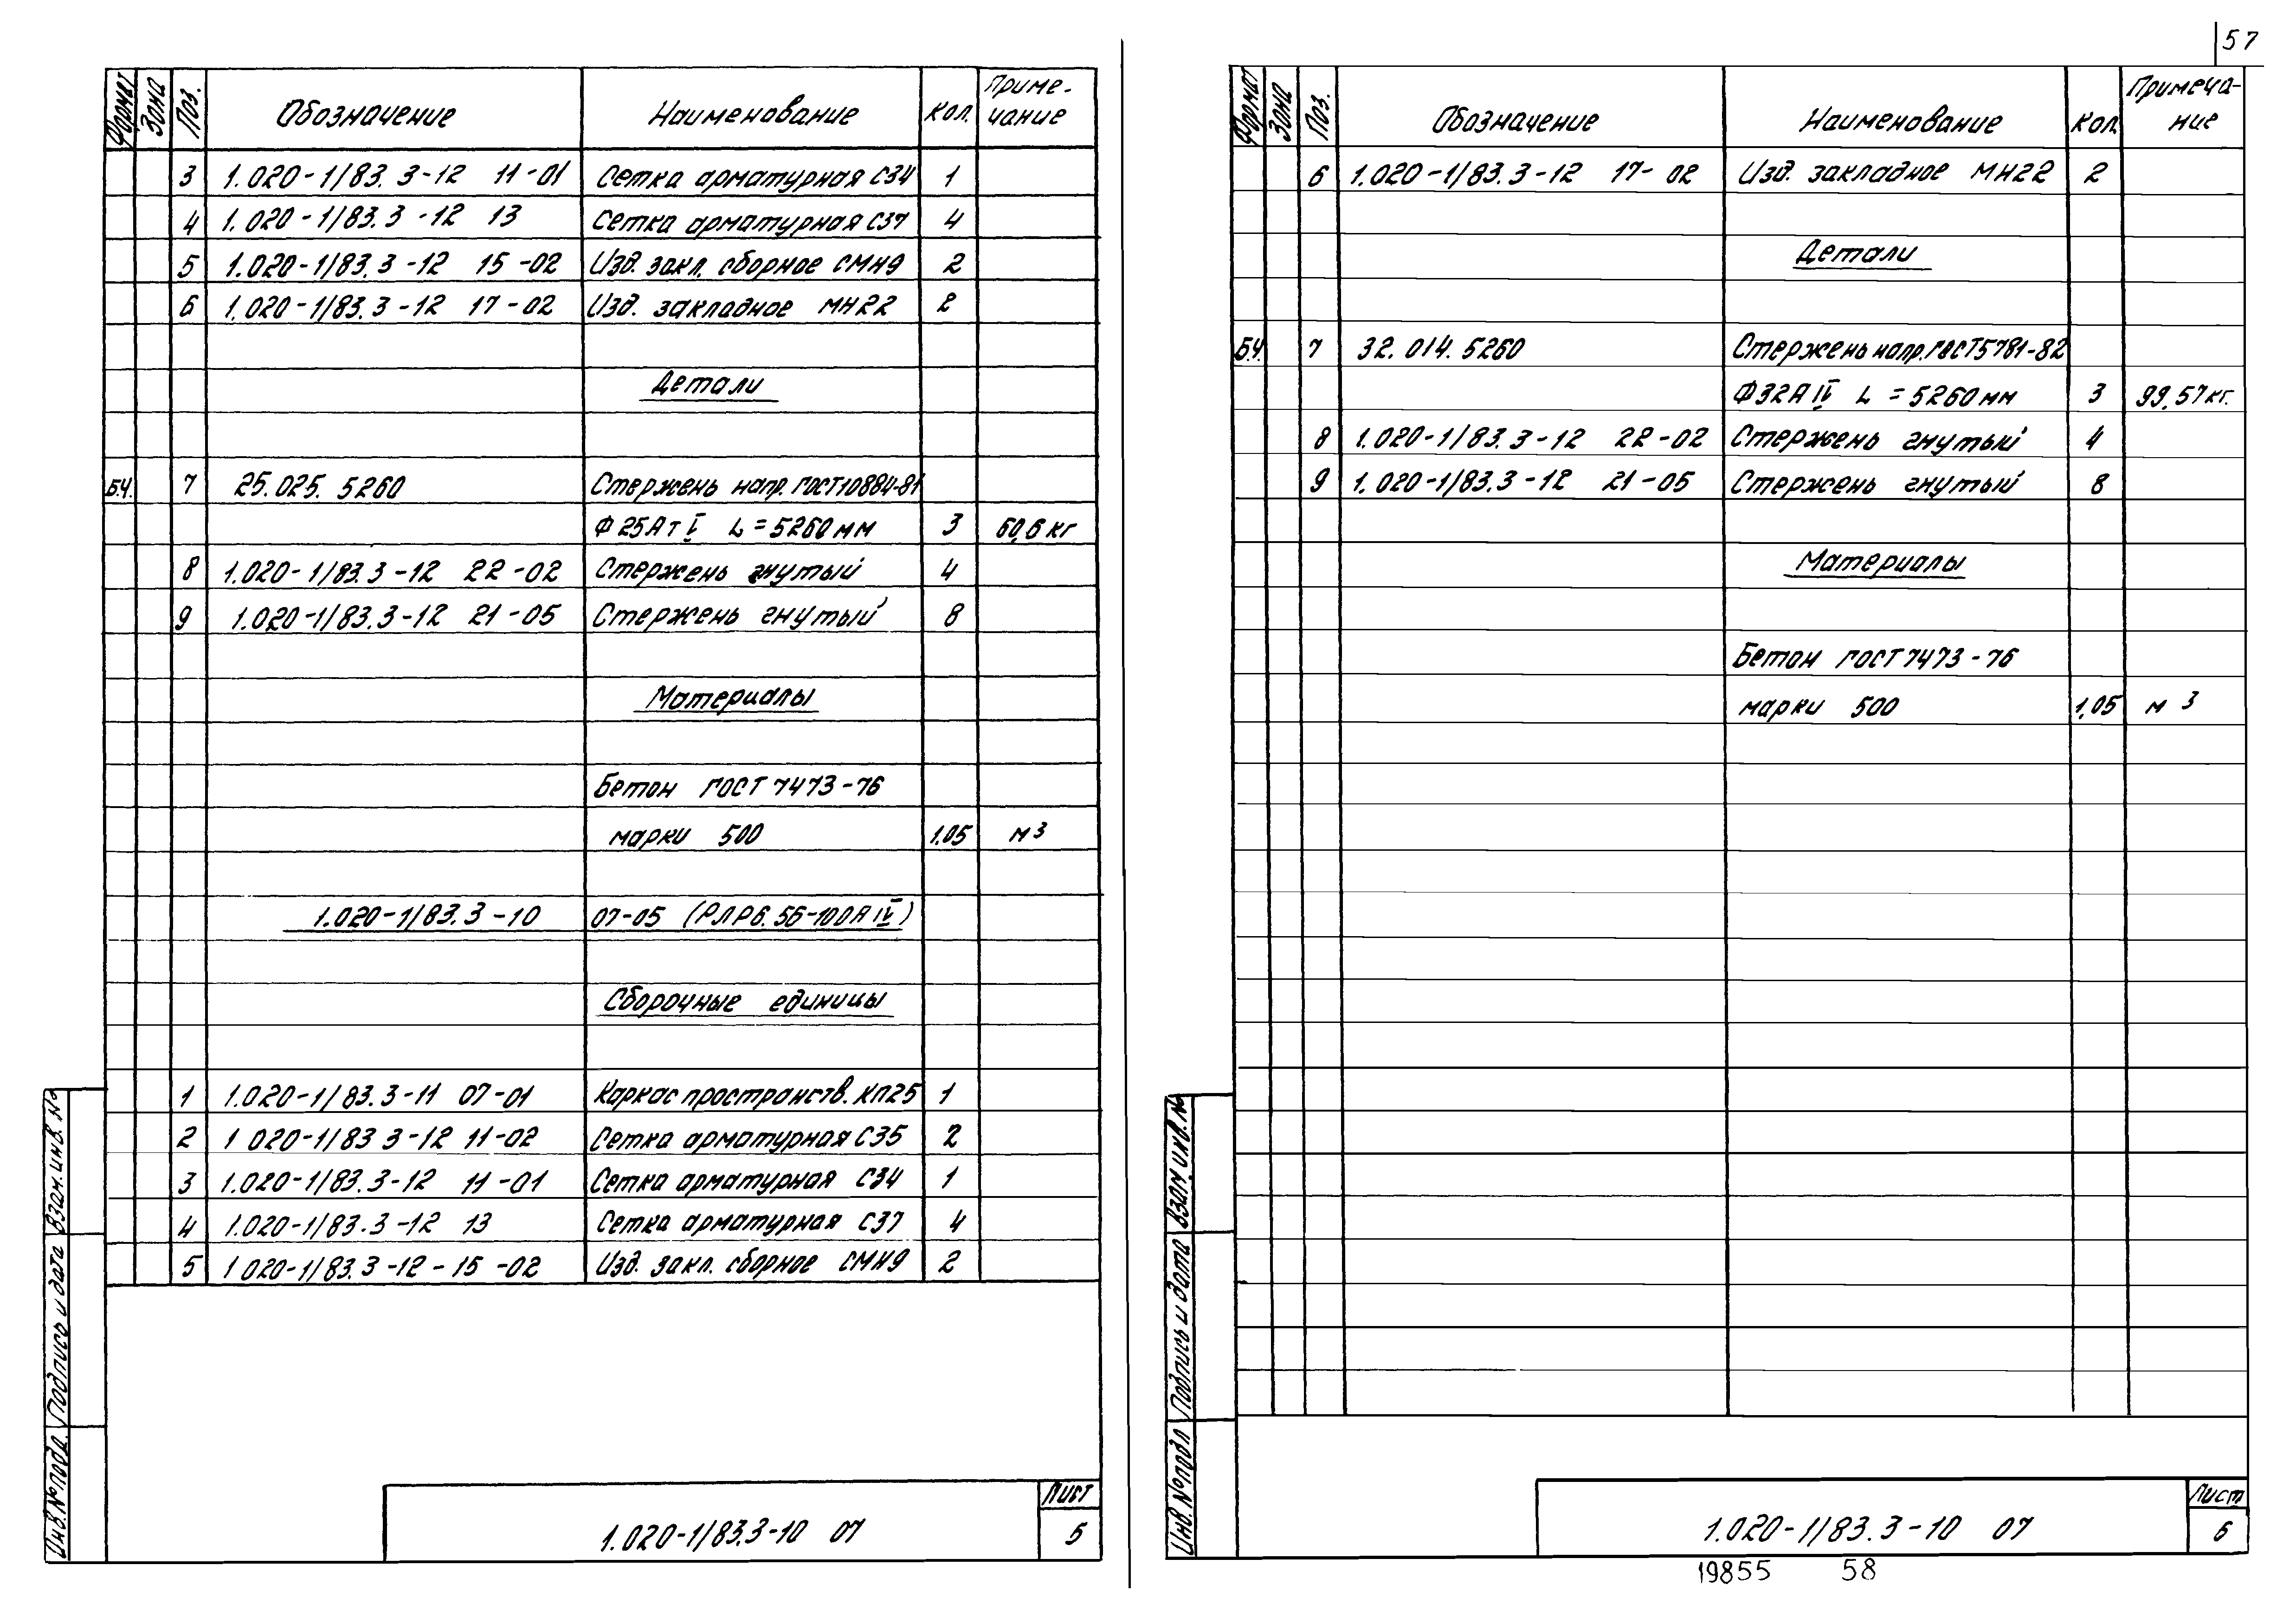 57
Формат Зона Поз. Обозначение Наименование Кол. Приме-
чание
3 1.020-1/83.3-12 11-01 Сетка арматурная С34 1
4 1.020-1/83.3-12 13 Сетка арматурная С37 4
5 1.020-1/83.3-12 15-02 Изд. закл. сборное СМН9 2
6 1.020-1/83.3-12 17-02 Изд. закладное МН22 2
Детали
Б.Ч. 7 25.025.5260 Стержень напр. ГОСТ10884-81
Ф25АтV L=5260мм 3 60,6 кг
8 1.020-1/83.3-12 22-02 Стержень гнутый 4
9 1.020-1/83.3-12 21-05 Стержень гнутый 8
Материалы
Бетон ГОСТ 7473-76
марки 500 1,05 м3
1.020-1/83.3-10 07-05 (РЛР6.56-100АIV)
Сборочные единицы
1 1.020-1/83.3-11 07-01 Каркас пространств. КП25 1
2 1 020-1/83 3-12 11-02 Сетка арматурная С35 2
3 1.020-1/83.3-12 11-01 Сетка арматурная С34 1
4 1.020-1/83.3-12 13 Сетка арматурная С37 4
5 1 020-1/83.3-12-15-02 Изд. закл. сборное СМН9 2
Инв.№подл. Подпись и дата Взам.инв.№
1.020-1/83.3-10 07
Лист
5
Формат Зона Поз. Обозначение Наименование Кол. Примеча-
ние
6 1.020-1/83.3-12 17-02 Изд. закладное МН22 2
Детали
Б.Ч. 7 32.014.5260 Стержень напр. ГОСТ5781-82
Ф32АIV L=5260мм 3 99,57кг.
8 1.020-1/83.3-12 22-02 Стержень гнутый 4
9 1.020-1/83.3-12 21-05 Стержень гнутый 8
Материалы
Бетон ГОСТ7473-76
марки 500 1,05 м3
Инв.№подл Подпись и дата Взам.инв.№
1.020-1/83.3-10 07
Лист
6
19855 58